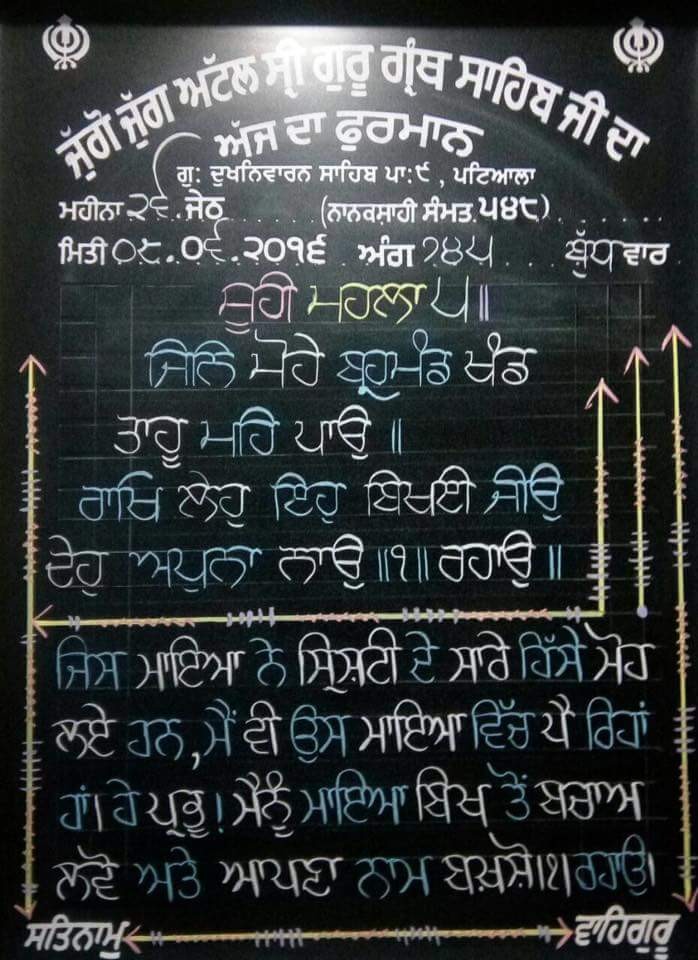 ਜੁੱਗੋ ਜੁੱਗ ਅੱਟਲ ਸ੍ਰੀ ਗੁਰੂ ਗ੍ਰੰਥ ਸਾਹਿਬ ਜੀ ਦਾ
ਅੱਜ ਦਾ ਫੁਰਮਾਨ
ਗੁ: ਦੁਖਨਿਵਾਰਨ ਸਾਹਿਬ ਪਾ:੯ , ਪਟਿਆਲਾ
ਮਹੀਨਾ ੨੬ ਜੇਠ (ਨਾਨਕਸਾਹੀ ਸੰਮਤ ੫੪੮)
ਮਿਤੀ ੦੮.੦੬.੨੦੧੬ ਅੰਗ ੭੪੫ ਬੁੱਧ ਵਾਰ
ਸੂਹੀ ਮਹਲਾ ੫॥
ਜਿਨਿ ਮੋਹੇ ਬ੍ਰਹਮੰਡ ਖੰਡ
ਤਾਹੂ ਮਹਿ ਪਾਉ ॥
ਰਾਖਿ ਲੇਹੁ ਇਹੁ ਬਿਖਈ ਜੀਉ
ਦੇਹੁ ਅਪੁਨਾ ਨਾਉ ॥੧॥ ਰਹਾਉ ॥
ਜਿਸ ਮਾਇਆ ਨੇ ਸ੍ਰਿਸ਼ਟੀ ਦੇ ਸਾਰੇ ਹਿੱਸੇ ਮੋਹ
ਲਏ ਹਨ, ਮੈਂ ਵੀ ਉਸ ਮਾਇਆ ਵਿੱਚ ਪੈ ਰਿਹਾਂ
ਹਾਂ। ਹੇ ਪ੍ਰਭੂ! ਮੈਨੂੰ ਮਾਇਆ ਬਿਖ ਤੋਂ ਬਚਾਅ
ਲਵੋ ਅਤੇ ਆਪਣਾ ਨਾਮ ਬਖ਼ਸ਼ੋ।੧। ਰਹਾਉ।
ਸਤਿਨਾਮੁ ਵਾਹਿਗੁਰੂ